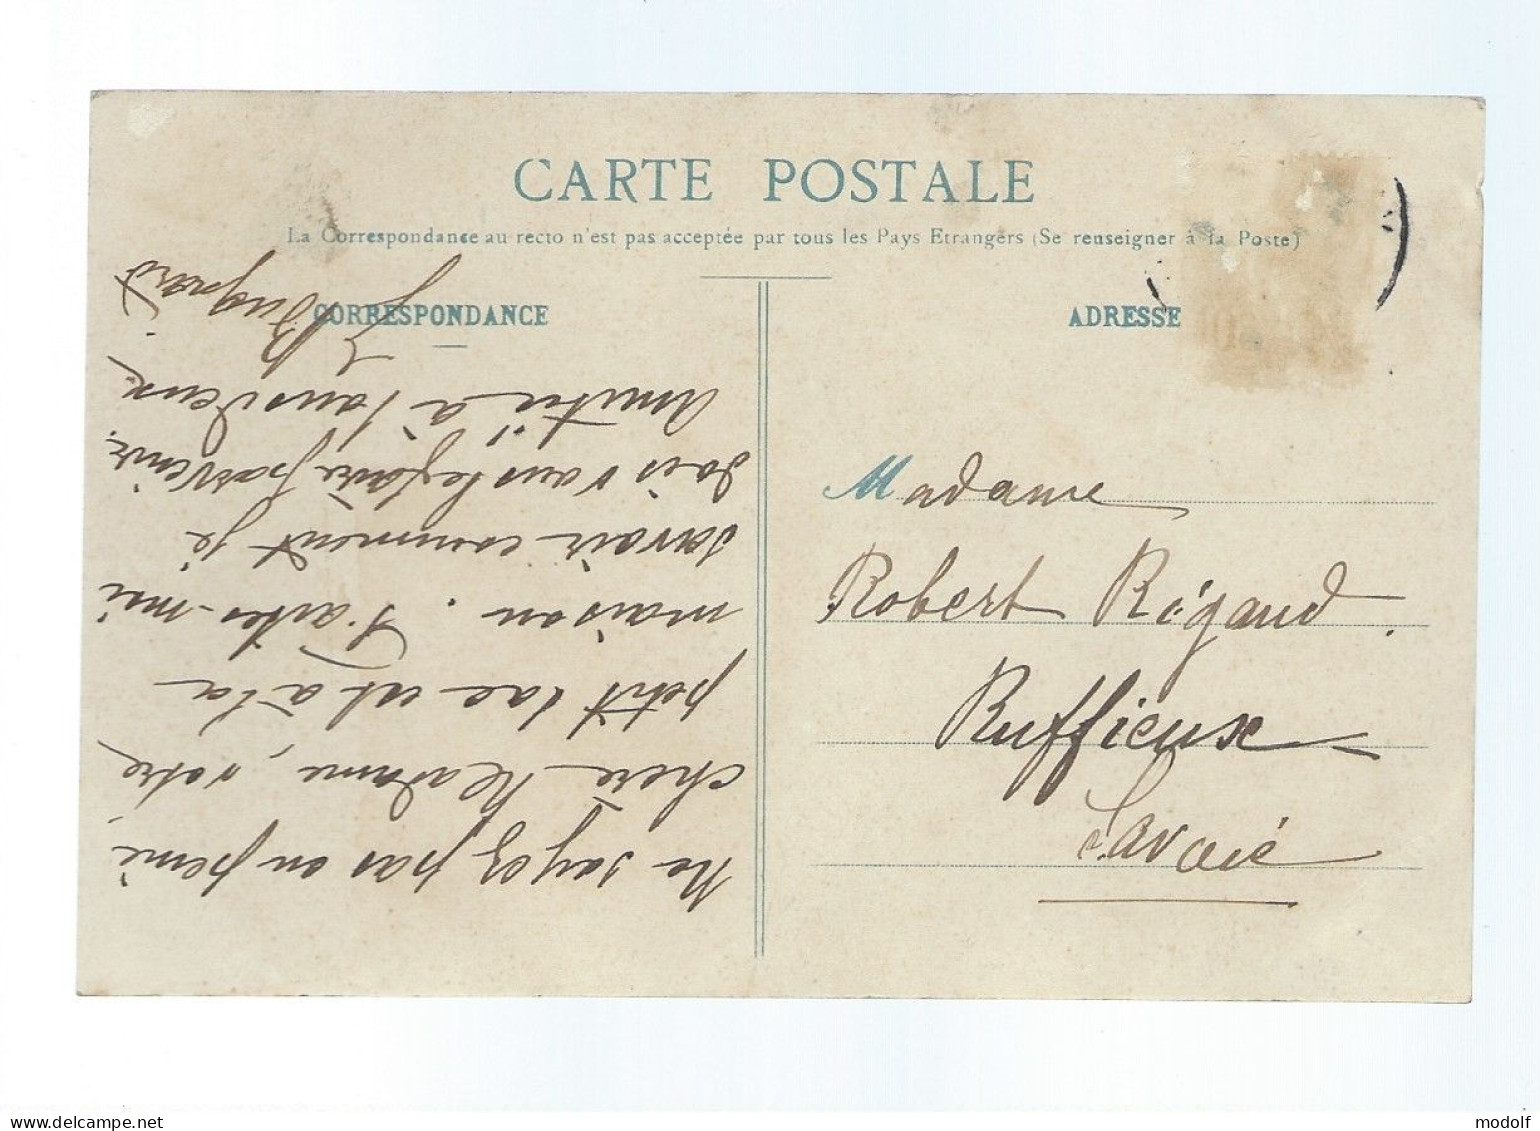 CARTE POSTALE
La Correspondance au recto n'est pas acceptée par tous les Pays Etrangers (Se renseigner à la Poste)
CORRESPONDANCE
ADRESSE
Ne soyez pas en peine
chère Madame, votre
petit sac est à la
maison. Faites-moi
savoir comment je
dois vous le faire parvenir.
Amitié à tous deux.
Bugnard
Madame
Robert Rigaud.
Ruffieux
Savoie
modolf